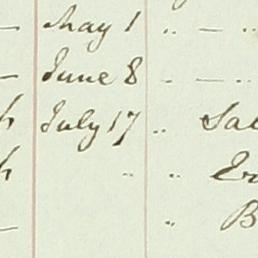 — May 1 .. — ..
— June 8 .. — ..
h July 17 .. Sal
h .. .. Er
— .. B